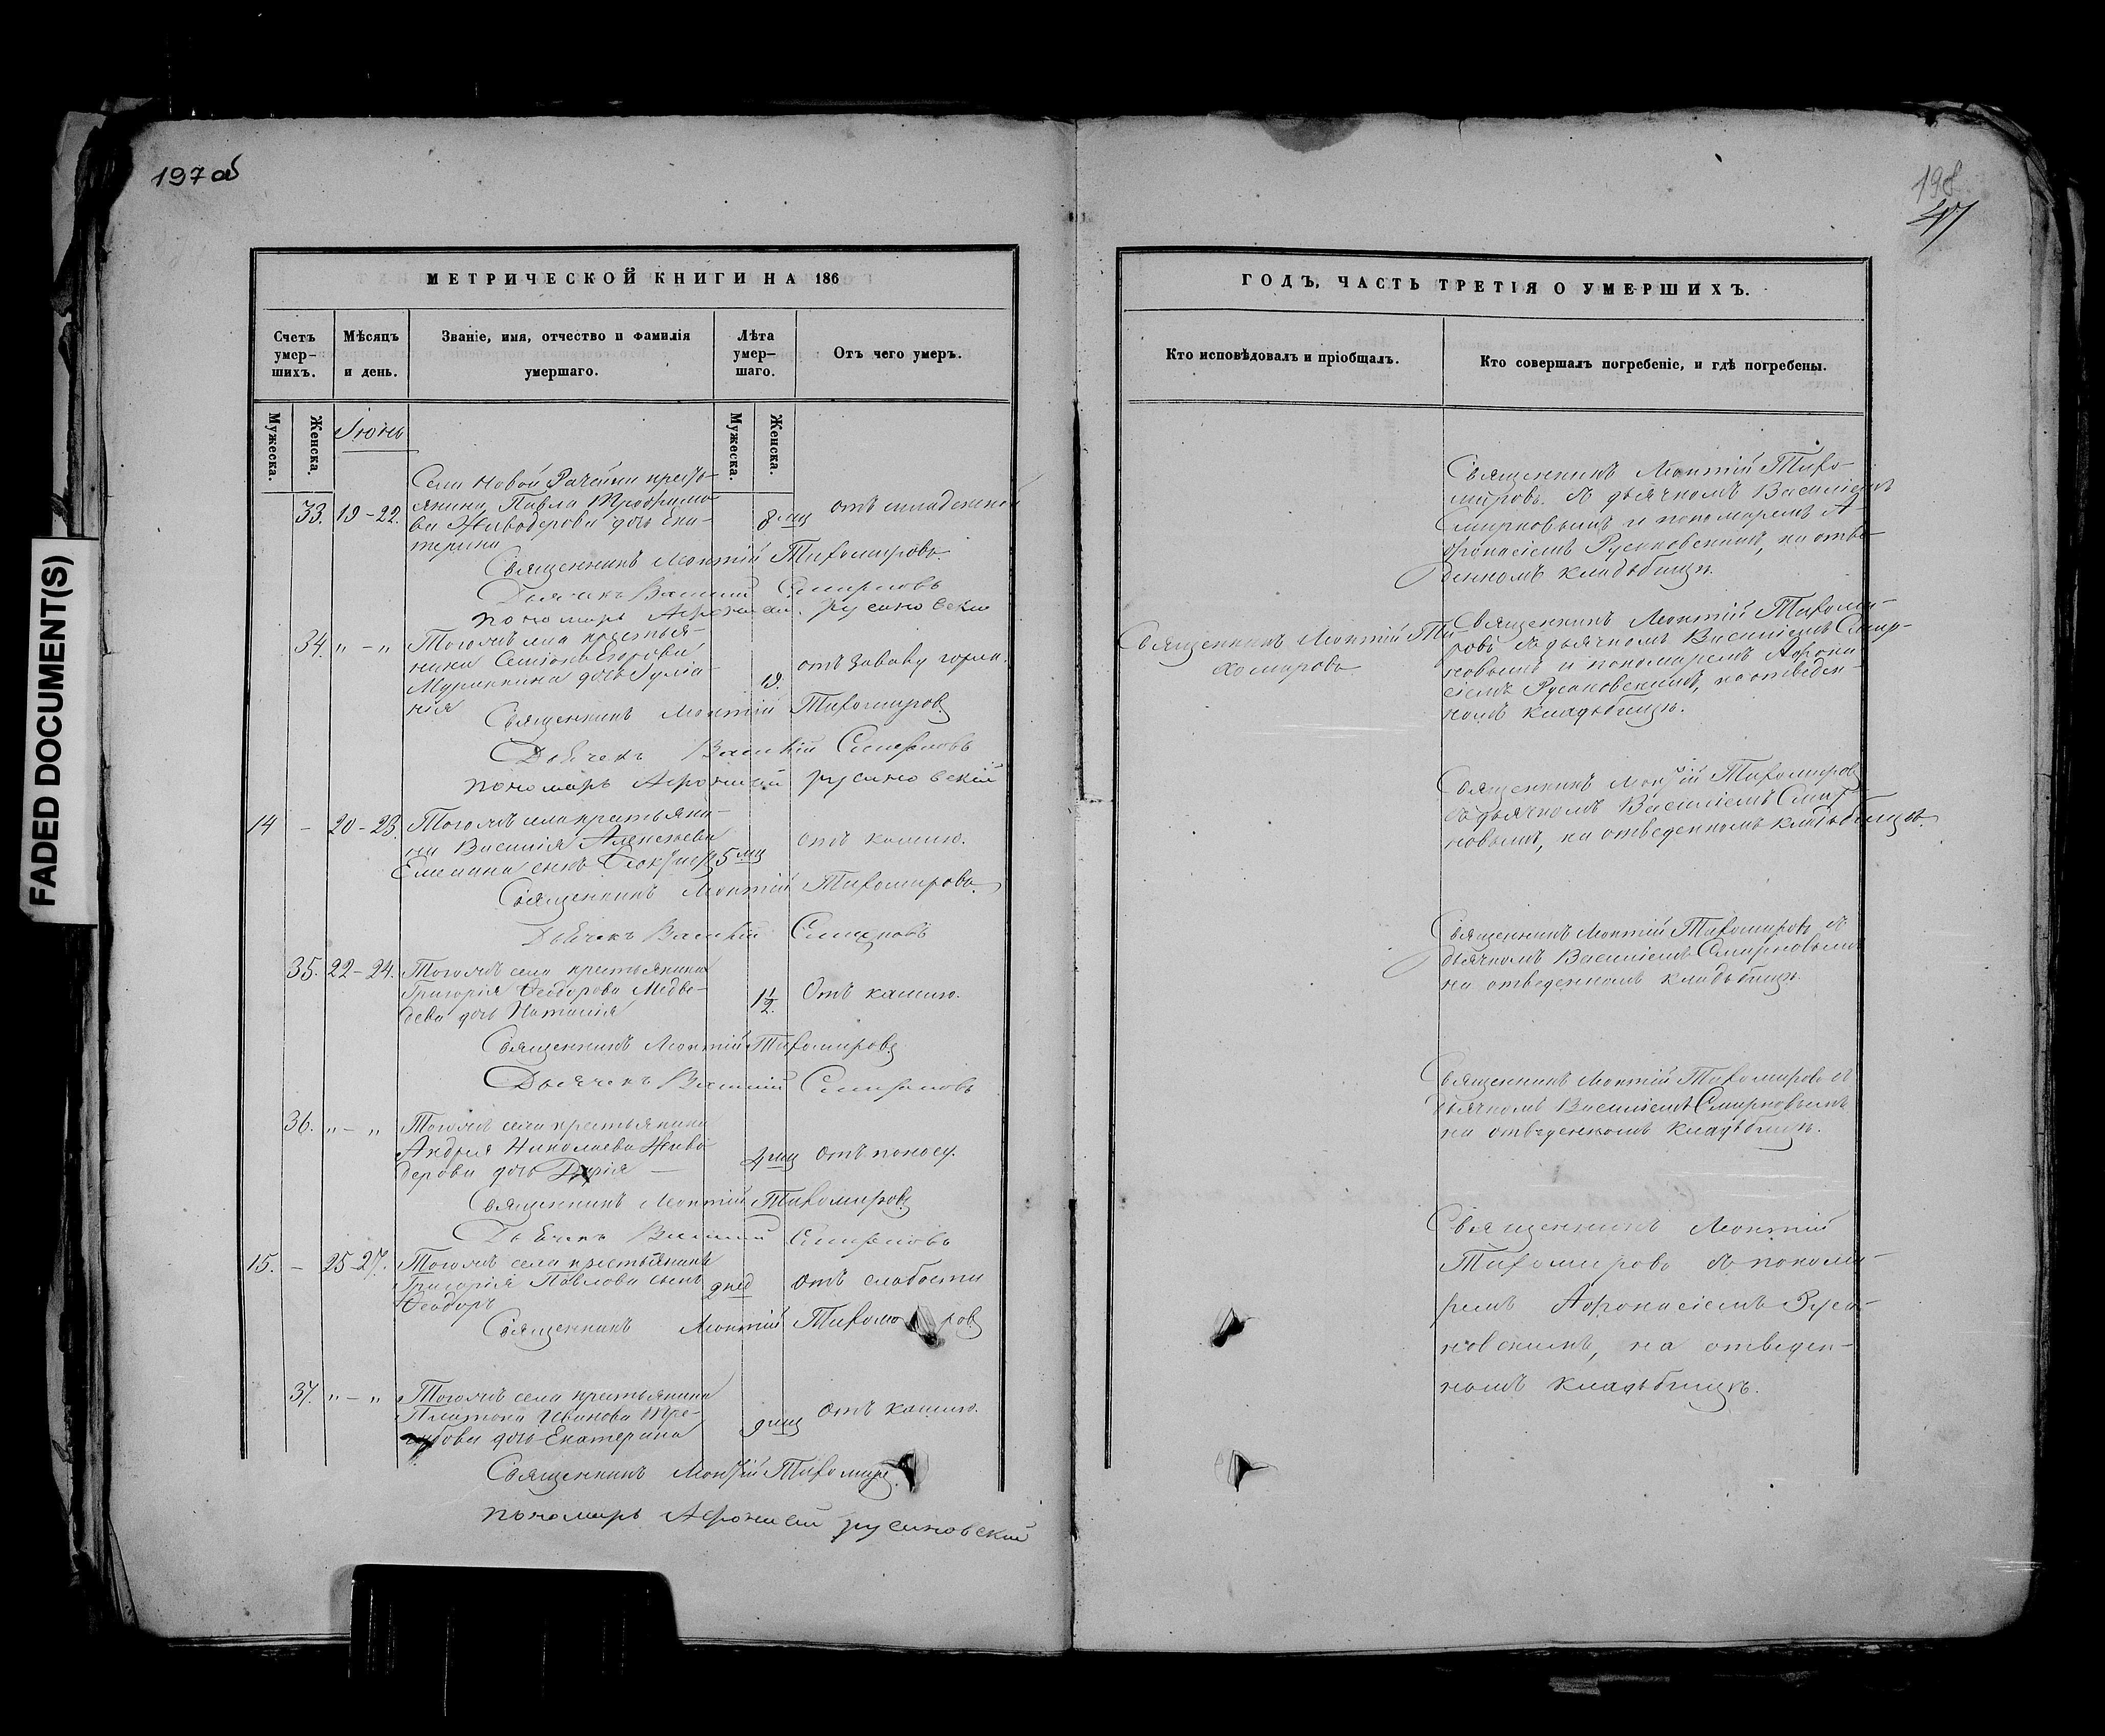 197 об
198
47
FADED DOCUMENT(S)
МЕТРИЧЕСКОЙ КНИГИ НА 186
Счетъ умер-шихъ.
Мѣсяцъ и день.
Званіе, имя, отчество и фамилія умершаго.
Лѣта умер-шаго.
Отъ чего умеръ.
Мужеска.
Женска.
Іюнь
Мужеска.
Женска.
Села Новой Рачейки кресть-
33. 19-22. янина Павла Трофимо- 8 мц отъ младенской
ва Живодерова дочь Ека-
терина
Священникъ Леонтій Тихомировъ
Дьячекъ Василій Смирновъ
пономарь Афонасій русановскій
34. „ - „ Тогожъ села крестья-
нина Семіона Егорова
дочь Іулиа- 19. отъ завалу горла.
нія
Священникъ Леонтій Тихомировъ
Дьячекъ Василій Смирновъ
пономарь Афонасій русановскій
14 - 20-23. Тогожъ села крестьяни-
на Василія Алексѣева
сынъ 5 мц отъ кашлю.
Священникъ Леонтій Тихомировъ
Дьячекъ Василій Смирновъ
35. 22-24. Тогожъ села крестьянина
Григорія Ѳеодорова Медве-
дева дочь Наталія 1 1/2. Отъ кашлю.
Священникъ Леонтій Тихомировъ
Дьячекъ Василій Смирновъ
36. „ - „ Тогожъ села крестьянина
Андрея Николаева Живо-
дерова дочь Дарія 4 мц Отъ поносу.
Священникъ Леонтій Тихомировъ
Дьячекъ Василій Смирновъ
15. - 25-27. Тогожъ села крестьянина
Григорія Павлова сынъ отъ слабости
Ѳеодоръ
Священникъ Леонтій Тихомировъ
37. „ - „ Тогожъ села крестьянина
Платона Иванова Тре-
губова дочь Екатерина 9 мц Отъ кашлю.
Священникъ Леонтій Тихомиров
пономарь Афонасій русановский
ГОДЪ, ЧАСТЬ ТРЕТІЯ О УМЕРШИХЪ.
Кто исповѣдовалъ и пріобщалъ.
Кто совершалъ погребеніе, и гдѣ погребены.
Священникъ Леонтій Тихо-
мировъ съ дьячкомъ Василіемъ
Смирновымъ и пономаремъ А-
фонасіемъ Русановскимъ, на отве-
денномъ кладбищѣ.
Священникъ Леонтій Ти-
хомировъ
Священникъ Леонтій Тихоми-
ровъ съ дьячкомъ Василіемъ Смир-
новымъ и пономаремъ Афона-
сіемъ Русановскимъ, на отведен-
номъ кладбищѣ.
Священникъ Леонтій Тихомировъ
съ дьячкомъ Василіемъ Смир-
новымъ, на отведенномъ кладбищѣ.
Священникъ Леонтій Тихомировъ съ
дьячкомъ Василіемъ Смирновымъ
на отведенномъ кладбищѣ.
Священникъ Леонтій Тихомировъ съ
дьячкомъ Василіемъ Смирновымъ
на отведенномъ кладбищѣ.
Священникъ Леонтій
Тихомировъ съ понома-
ремъ Афонасіемъ Руса-
новскимъ, на отведен-
номъ кладбищѣ.